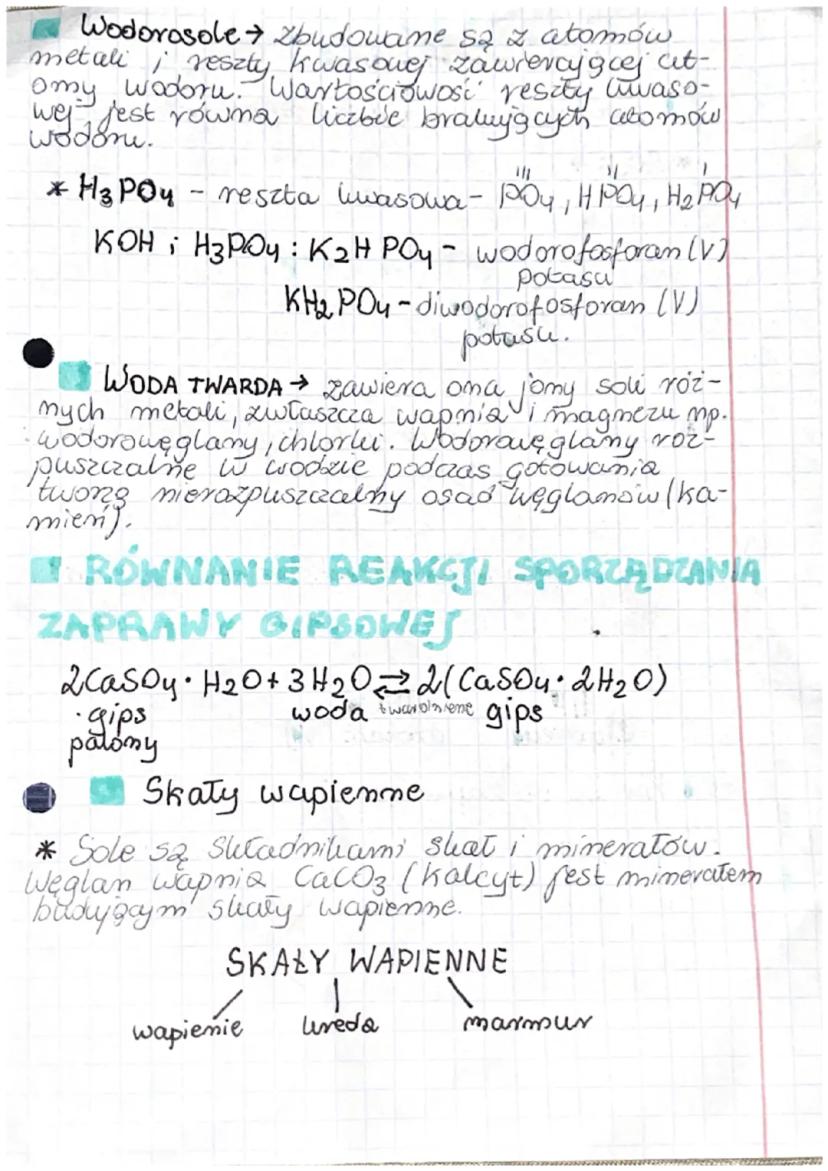 Wodorosole → zbudowane są z atomów
metali i reszty kwasowej zawierającej at-
omy wodoru. Wartościowość reszty kwaso-
wej jest równa liczbie brakujących atomów
wodoru.
* H3PO4 - reszta kwasowa - PO4, HPO4, H2PO4
III II I
KOH i H3PO4 : K2HPO4 - wodorofosforan (V)
potasu
KH2PO4 - diwodorofosforan (V)
potasu.
WODA TWARDA → zawiera ona jony soli róż-
nych metali, zwłaszcza wapnia i magnezu np.
wodorowęglany, chlorki. Wodorowęglany roz-
puszczalne w wodzie podczas gotowania
tworzą nierozpuszczalny osad węglanów (ka-
mień).
RÓWNANIE REAKCJI SPORZĄDZANIA
ZAPRAWY GIPSOWEJ
2CaSO4 · H2O + 3H2O ⇄ 2(CaSO4 · 2H2O)
gips woda twardnienie gips
palony
Skały wapienne
* Sole są składnikami skał i minerałów.
Węglan wapnia CaCO3 (kalcyt) jest minerałem
budującym skały wapienne.
SKAŁY WAPIENNE
wapienie kreda marmur